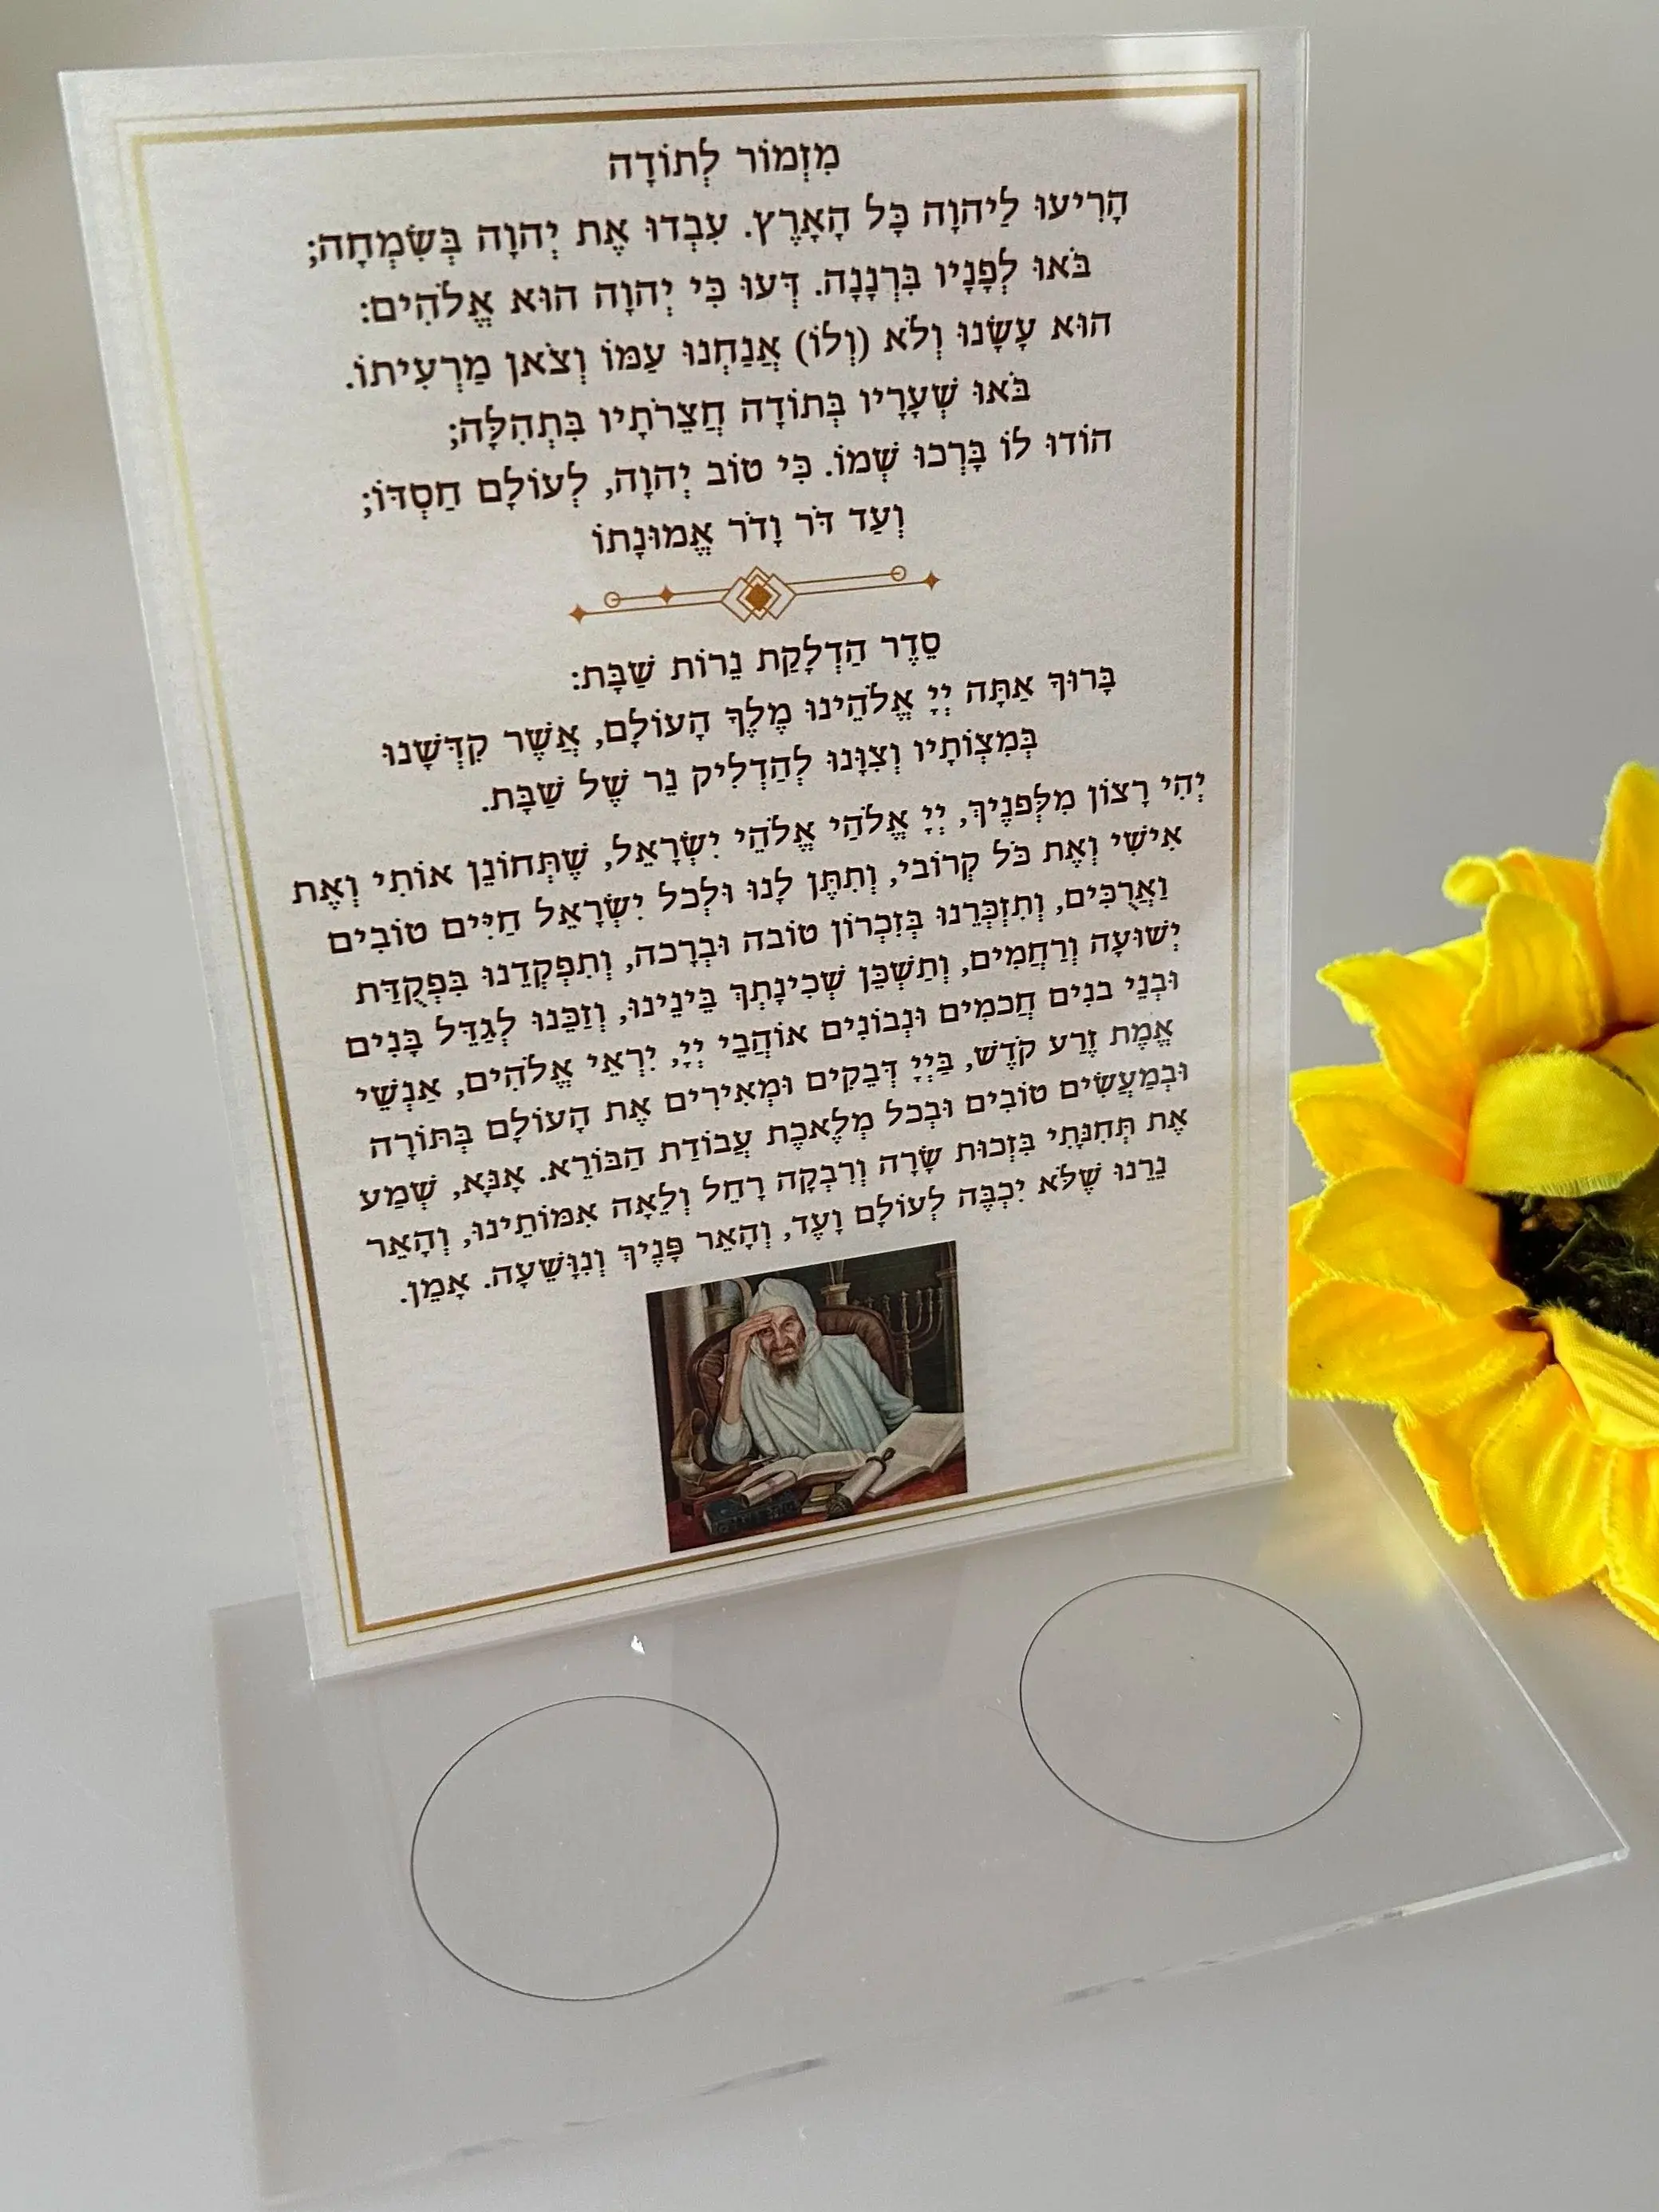 מִזְמוֹר לְתוֹדָה
הָרִיעוּ לַיהוָה כָּל הָאָרֶץ. עִבְדוּ אֶת יְהוָה בְּשִׂמְחָה;
בֹּאוּ לְפָנָיו בִּרְנָנָה. דְּעוּ כִּי יְהוָה הוּא אֱלֹהִים:
הוּא עָשָׂנוּ וְלֹא (וְלוֹ) אֲנַחְנוּ עַמּוֹ וְצֹאן מַרְעִיתוֹ.
בֹּאוּ שְׁעָרָיו בְּתוֹדָה חֲצֵרֹתָיו בִּתְהִלָּה;
הוֹדוּ לוֹ בָּרְכוּ שְׁמוֹ. כִּי טוֹב יְהוָה, לְעוֹלָם חַסְדּוֹ;
וְעַד דֹּר וָדֹר אֱמוּנָתוֹ
סֵדֶר הַדְלָקַת נֵרוֹת שַׁבָּת:
בָּרוּךְ אַתָּה יְיָ אֱלֹהֵינוּ מֶלֶךְ הָעוֹלָם, אֲשֶׁר קִדְּשָׁנוּ
בְּמִצְוֹתָיו וְצִוָּנוּ לְהַדְלִיק נֵר שֶׁל שַׁבָּת.
יְהִי רָצוֹן מִלְּפנֶיךָ, יְיָ אֱלֹהַי אֱלֹהֵי יִשְׂרָאֵל, שֶׁתְּחוֹנֵן אוֹתִי וְאֶת
אִישִׁי וְאֶת כֹּל קְרוֹבי, וְתִתֶּן לָנוּ וּלְכל יִשְׂרָאֵל חַיִּים טוֹבִים
וַאֲרֻכִּים, וְתִזְכְּרֵנוּ בְּזִכְרוֹן טוֹבה וּבְרָכה, וְתִפְקְדֵנוּ בִּפְקֻדַּת
יְשׁוּעָה וְרַחֲמִים, וְתַשְׁכֵּן שְׁכִינָתְךָ בֵּינֵינוּ, וְזַכֵּנוּ לְגַדֵּל בָּנִים
וּבְנֵי בנִים חֲכמִים וּנְבוֹנִים אוֹהֲבֵי יְיָ, יִרְאֵי אֱלֹהִים, אַנְשֵׁי
אֱמֶת זֶרַע קֹדֶשׁ, בַּיְיָ דְּבֵקִים וּמְאִירִים אֶת הָעוֹלָם בְּתּוֹרָה
וּבְמַעֲשִׂים טוֹבִים וּבְכל מְלֶאכֶת עֲבוֹדַת הַבּוֹרֵא. אָנָּא, שְׁמַע
אֶת תְּחִנָּתִי בִּזְכוּת שָׂרָה וְרִבְקָה רָחֵל וְלֵאָה אִמּוֹתֵינוּ, וְהָאֵר
נֵרֵנוּ שֶׁלֹּא יִכְבֶּה לְעוֹלָם וָעֶד, וְהָאֵר פָּנֶיךָ וְנִוָּשֵׁעָה. אָמֵן.